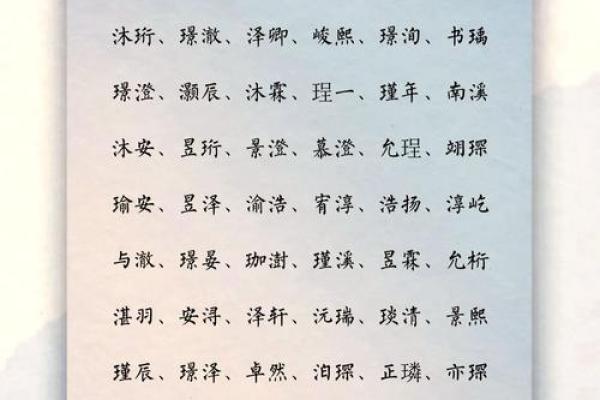 沐珩、璟澈、泽卿、峻熙、璟洵、书瑀
璟澄、灏辰、沐霖、珵一、瑾年、南溪
沐安、昱珩、景澄、慕澄、允珵、翊琛
瑜安、昱泽、渝浩、宥淳、浩扬、淳屹
与澈、璟晏、珈澍、瑾溪、昱霖、允桁
湛羽、安浔、泽轩、沅瑞、琰清、景熙
瑾辰、璟泽、卓然、泊琛、正璘、亦琛